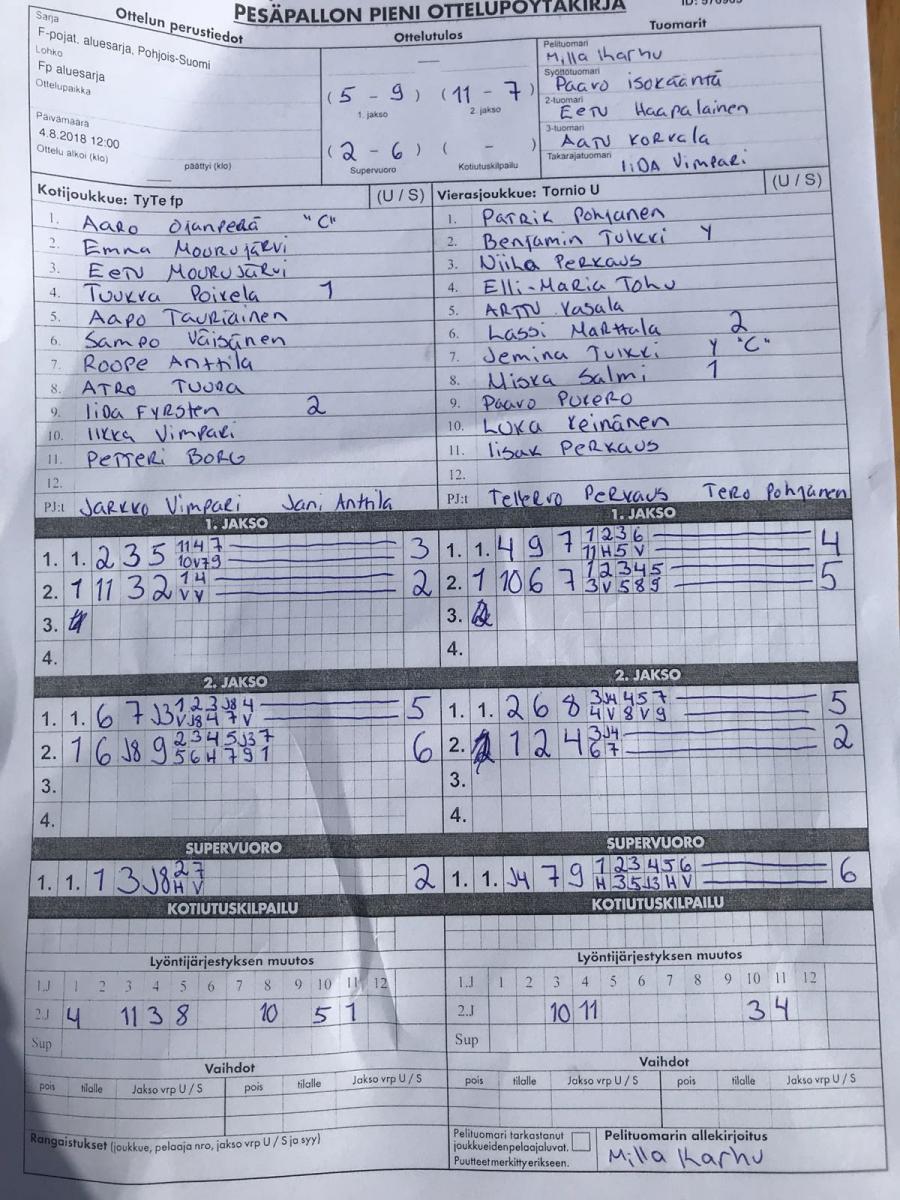 PESÄPALLON PIENI OTTELUPÖYTÄKIRJA
Ottelun perustiedot
Sarja
F-pojat, aluesarja, Pohjois-Suomi
Lohko
Fp aluesarja
Ottelupaikka
Päivämäärä
4.8.2018 12:00
Ottelu alkoi (klo) päättyi (klo)
Ottelutulos
( 5 - 9 ) ( 11 - 7 )
1. jakso 2. jakso
( 2 - 6 ) ( - )
Supervuoro Kotiutuskilpailu
Tuomarit
Pelituomari
Milla Karhu
Syöttötuomari
Paavo Isokääntä
2-tuomari
Eetu Haapalainen
3-tuomari
Aatu Korvala
Takarajatuomari
Iida Vimpari
Kotijoukkue: TyTe fp (U / S)
1. Aaro Ojanperä "C"
2. Emma Mourujärvi
3. Eetu Mourujärvi
4. Tuukka Poikela 1
5. Aapo Tauriainen
6. Sampo Väisänen
7. Roope Anttila
8. Atro Tuura
9. Iida Fyrsten 2
10. Iikka Vimpari
11. Petteri Borg
12.
PJ:t Jarkko Vimpari Jani Anttila
Vierasjoukkue: Tornio U (U / S)
1. Patrik Pohjanen
2. Benjamin Tulkki Y
3. Niila Perkaus
4. Elli-Maria Tohu
5. Arttu Vasala
6. Lassi Marttala 2
7. Jemina Tulkki Y "C"
8. Miska Salmi 1
9. Paavo Pukero
10. Luka Keinänen
11. Iisak Perkaus
12.
PJ:t Tellervo Perkaus Tero Pohjanen
1. JAKSO
1. 1. 2 3 5 11 4 7 3
10 V 7 9
2. 1 11 3 2 1 4 2
V V
3.
4.
1. JAKSO
1. 1. 4 9 7 1 2 3 6 4
11 H 5 V
2. 1 10 6 7 1 2 3 4 5 5
3 V 5 8 9
3.
4.
2. JAKSO
1. 1. 6 7 J3 1 2 3 J8 4 5
V J8 4 7 V
2. 1 6 J8 9 2 3 4 5 J3 7 6
5 6 H 7 9 1
3.
4.
2. JAKSO
1. 1. 2 6 8 3 J4 4 5 7 5
4 V 8 V 9
2. 1 2 4 3 J4 2
6 7
3.
4.
SUPERVUORO
1. 1. 1 3 J8 2 7 2
H V
SUPERVUORO
1. 1. J4 7 9 1 2 3 4 5 6 6
H 3 5 J3 H V
KOTIUTUSKILPAILU
KOTIUTUSKILPAILU
Lyöntijärjestyksen muutos
1.J 1 2 3 4 5 6 7 8 9 10 11 12
2.J 4 11 3 8 10 5 1
Sup
Lyöntijärjestyksen muutos
1.J 1 2 3 4 5 6 7 8 9 10 11 12
2.J 10 11 3 4
Sup
Vaihdot
pois tilalle Jakso vrp U / S pois tilalle Jakso vrp U / S
Vaihdot
pois tilalle Jakso vrp U / S pois tilalle Jakso vrp U / S
Rangaistukset (joukkue, pelaaja nro, jakso vrp U / S ja syy)
Pelituomari tarkastanut
joukkueiden pelaajaluvat.
Puutteet merkitty erikseen.
Pelituomarin allekirjoitus
Milla Karhu